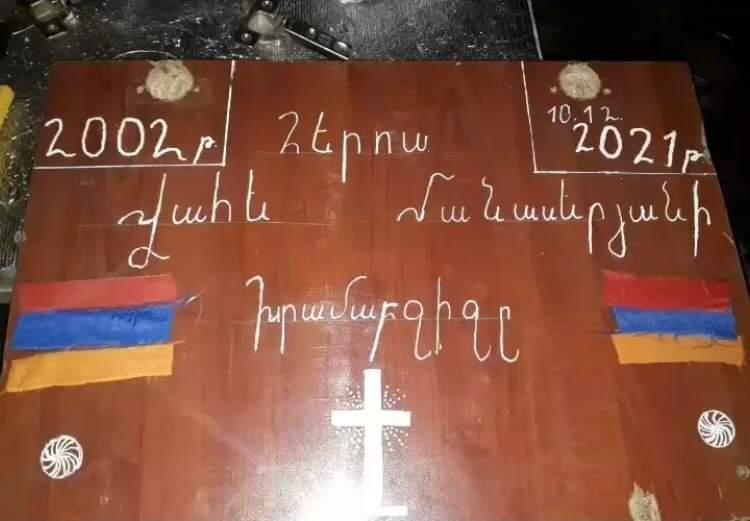 2002թ.
Հերոս
10.12.
2021թ
Վահե Մանասերյանի
խրամաբջիջը